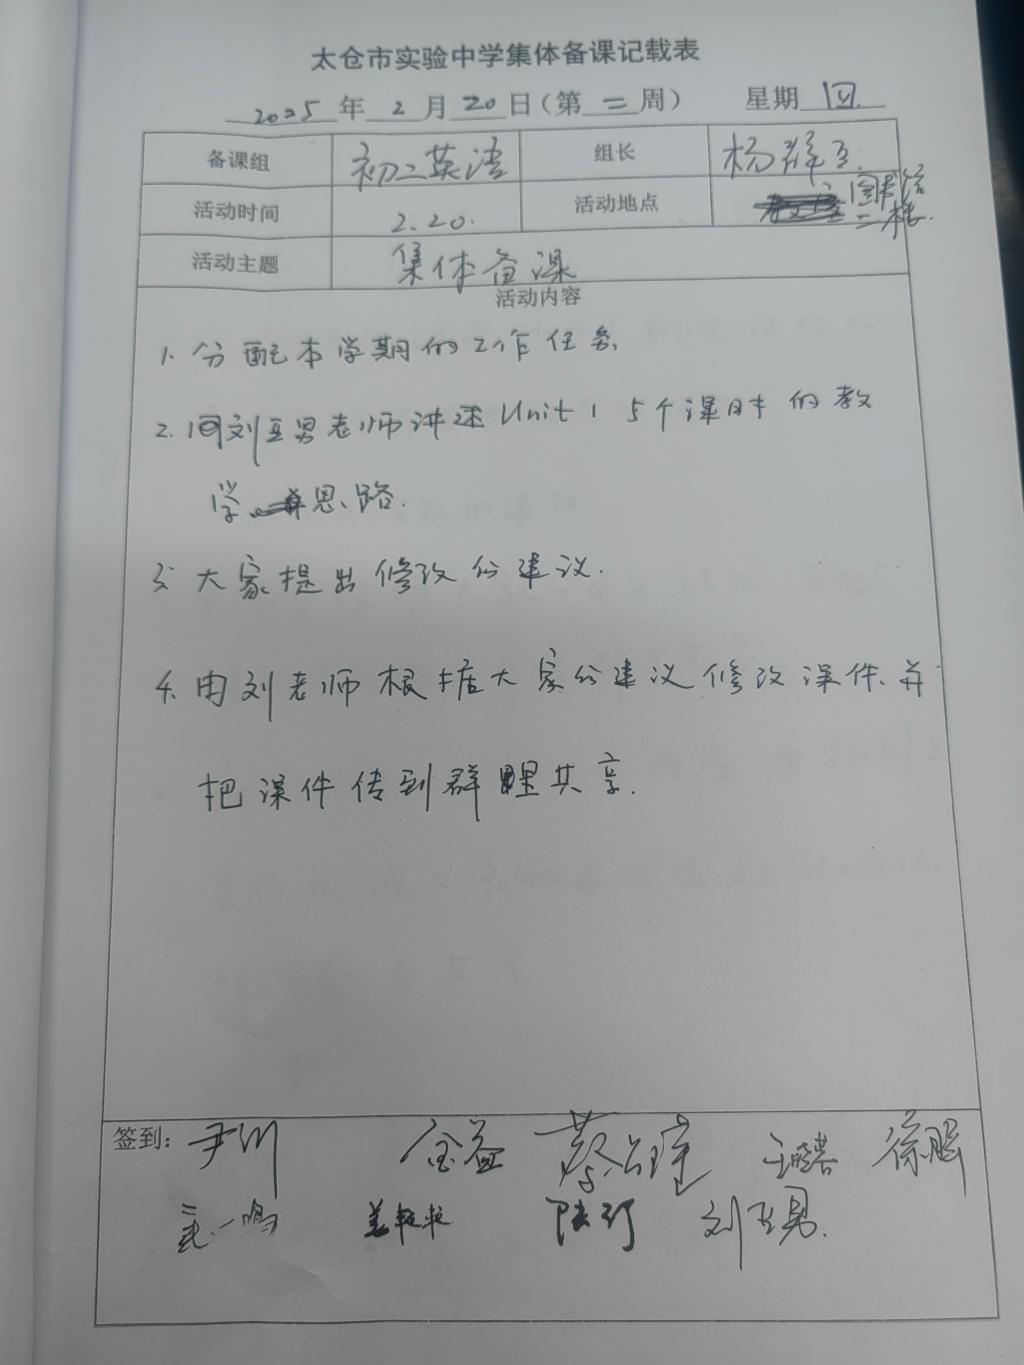 太仓市实验中学集体备课记载表
2025年2月20日(第二周) 星期四
备课组 初二英语 组长 杨群
活动时间 2.20. 活动地点 图书馆二楼.
活动主题 集体备课
活动内容
1. 分配本学期的工作任务.
2. 由刘亚男老师讲述Unit 1 5个课时的教
学思路.
3. 大家提出修改的建议.
4. 由刘老师根据大家的建议修改课件、并
把课件传到群里共享.
签到: 尹川 金益 蔡 徐鹏
一鸣 刘亚男.